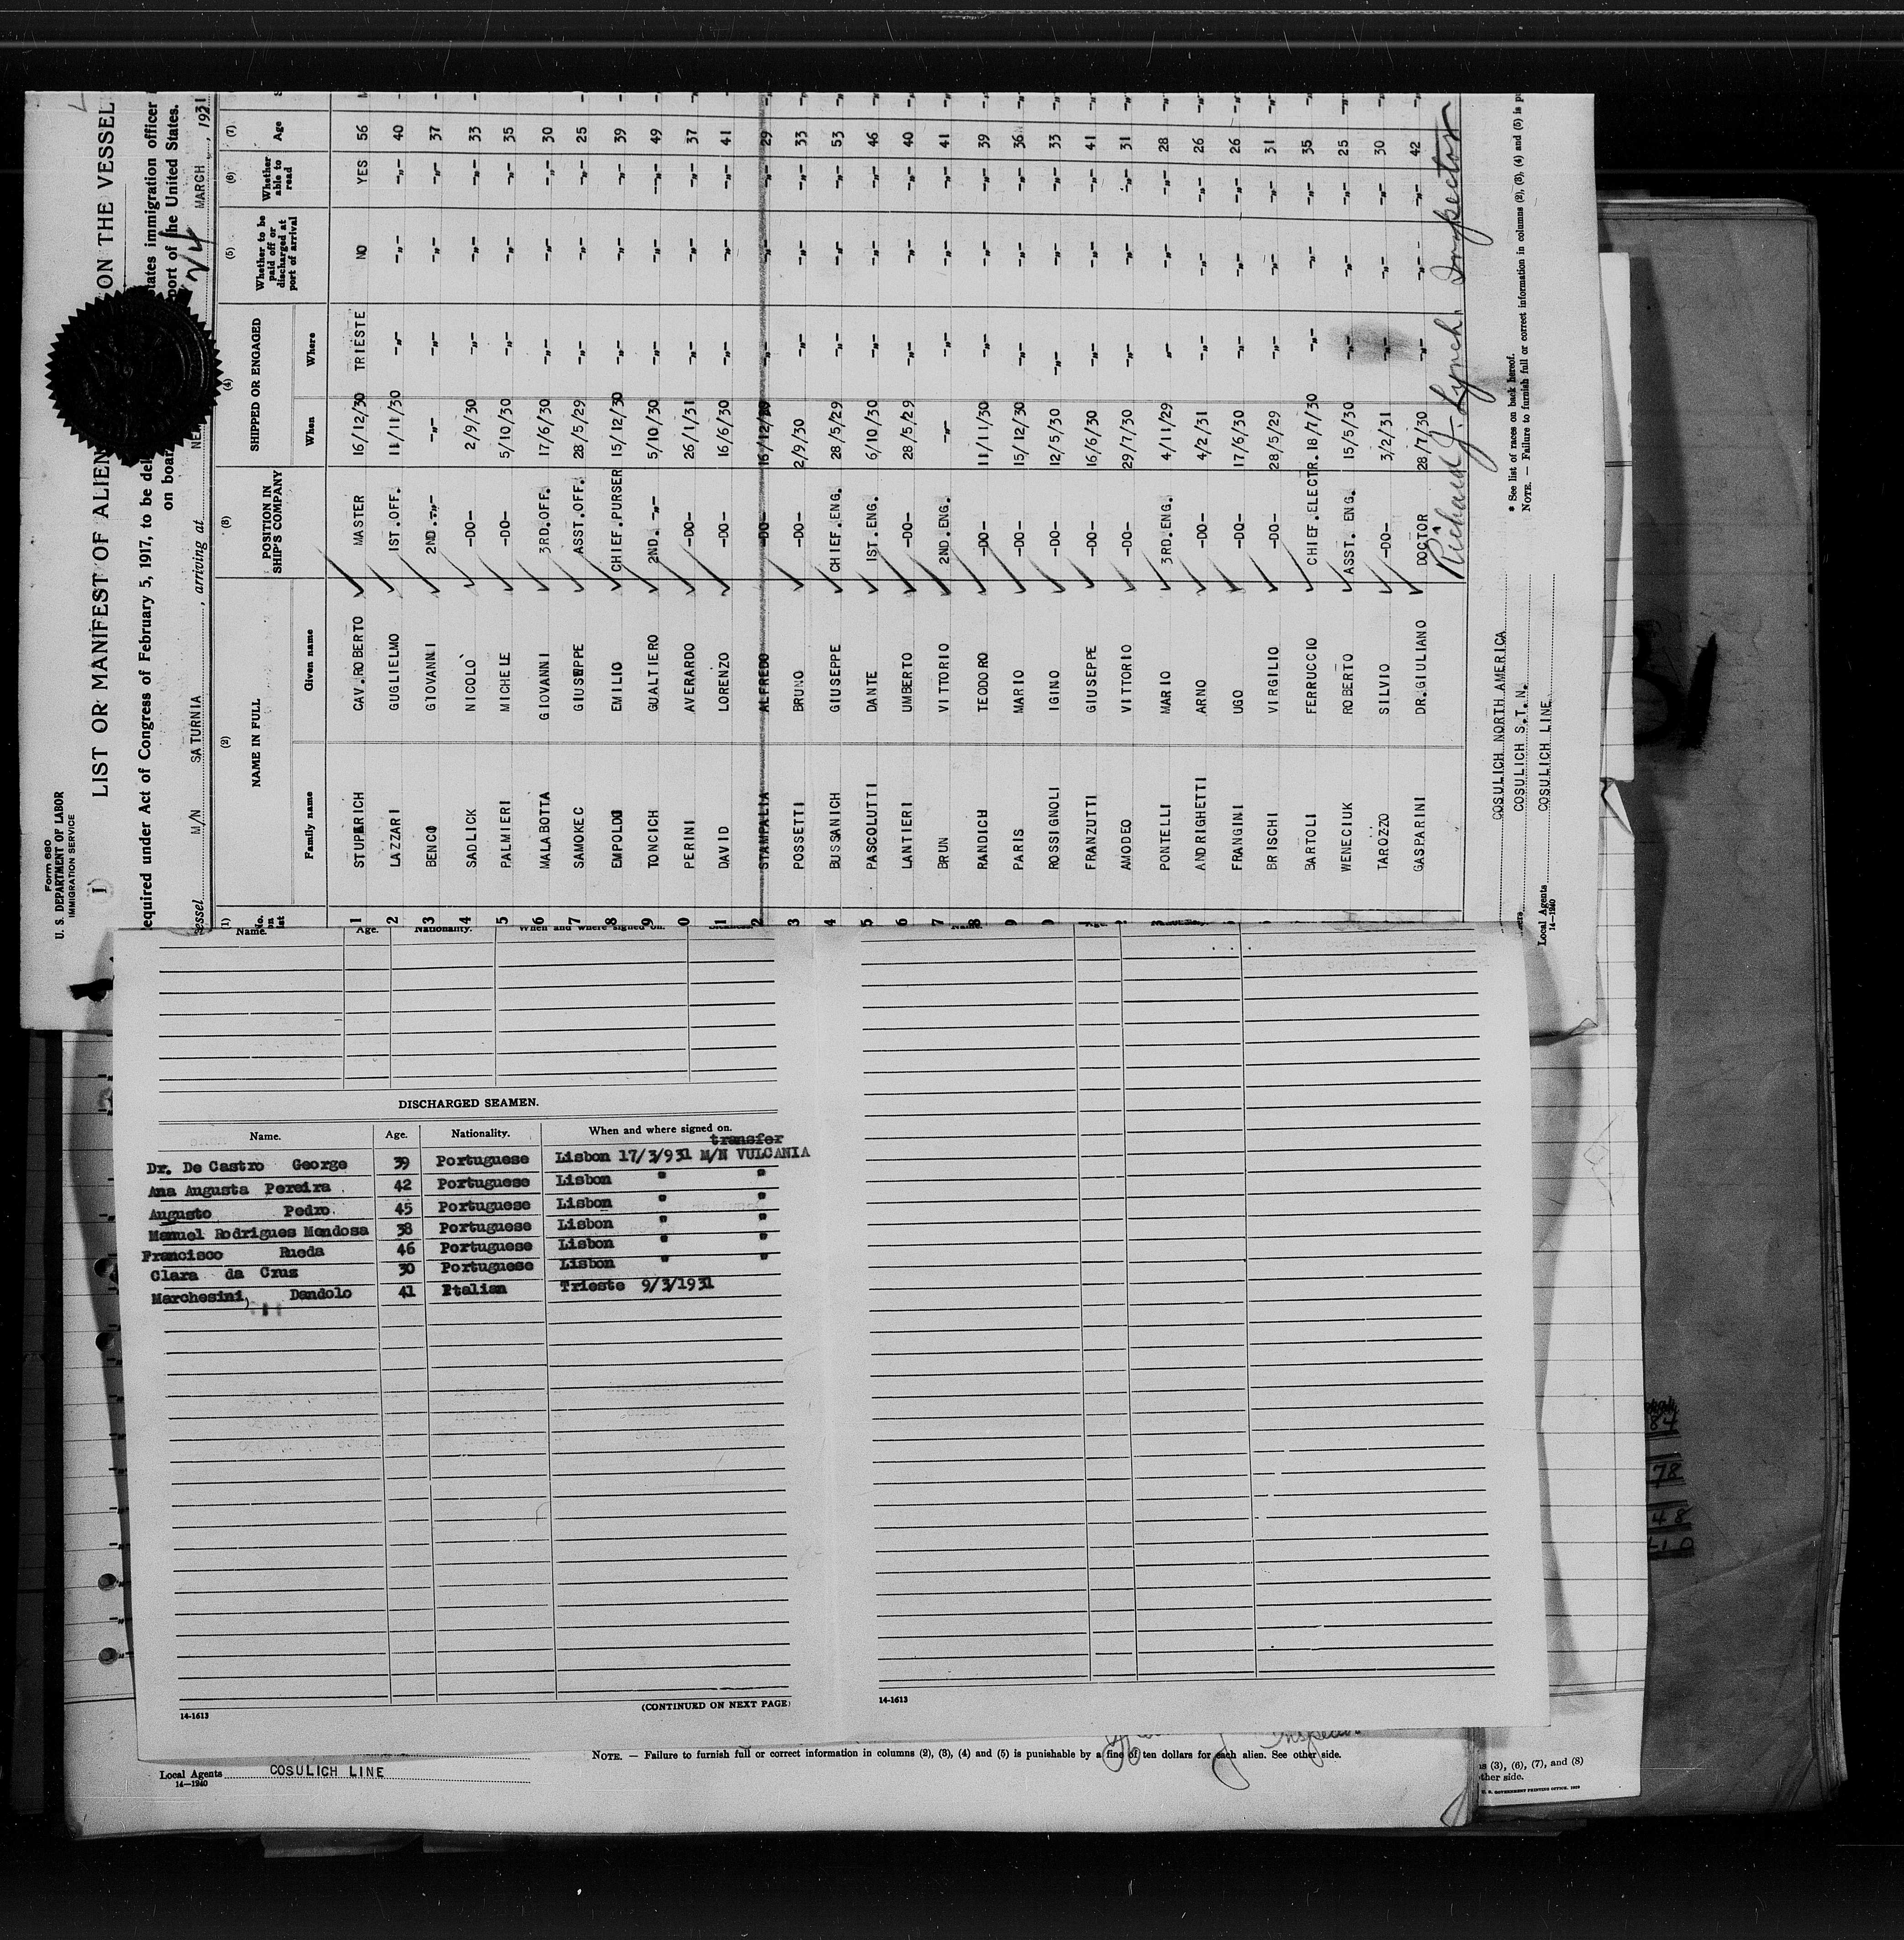 Form 680
U. S. DEPARTMENT OF LABOR
IMMIGRATION SERVICE
LIST OR MANIFEST OF ALIEN ON THE VESSEL
equired under Act of Congress of February 5, 1917, to be del tates immigration officer
on boar port of the United States.
essel M/N SATURNIA , arriving at NE MARCH , 1931
(1) (2) (3) (4) (5) (6) (7)
No. on list NAME IN FULL POSITION IN SHIP'S COMPANY SHIPPED OR ENGAGED Whether to be paid off or discharged at port of arrival Whether able to read Age
Family name Given name When Where
1 STUPARICH CAV.ROBERTO MASTER 16/12/30 TRIESTE NO YES 56
2 LAZZARI GUGLIELMO 1ST.OFF. 11/11/30 -"- -"- -"- 40
3 BENCO GIOVANNI 2ND.-"- -"- -"- -"- -"- 37
4 SADLICK NICOLO' -DO- 2/9/30 -"- -"- -"- 33
5 PALMIERI MICHELE -DO- 5/10/30 -"- -"- -"- 35
6 MALABOTTA GIOVANNI 3RD.OF. 17/6/30 -"- -"- -"- 30
7 SAMOKEC GIUSEPPE ASST.OFF. 28/5/29 -"- -"- -"- 25
8 EMPOLDI EMILIO CHIEF.PURSER 15/12/30 -"- -"- -"- 39
9 TONCICH GUALTIERO 2ND. -"- 5/10/30 -"- -"- -"- 49
0 PERINI AVERARDO -DO- 26/1/31 -"- -"- -"- 37
1 DAVID LORENZO -DO- 16/6/30 -"- -"- -"- 41
2 STAMPALIA ALFREDO -DO- 16/12/29 -"- -"- -"- 29
3 POSSETTI BRUNO -DO- 2/9/30 -"- -"- -"- 33
4 BUSSANICH GIUSEPPE CHIEF.ENG. 28/5/29 -"- -"- -"- 53
5 PASCOLUTTI DANTE 1ST.ENG. 6/10/30 -"- -"- -"- 46
6 LANTIERI UMBERTO -DO- 28/5/29 -"- -"- -"- 40
7 BRUN VITTORIO 2ND.ENG. -"- -"- -"- -"- 41
8 RANDICH TEODORO -DO- 11/11/30 -"- -"- -"- 39
9 PARIS MARIO -DO- 15/12/30 -"- -"- -"- 36
0 ROSSIGNOLI IGINO -DO- 12/5/30 -"- -"- -"- 33
FRANZUTTI GIUSEPPE -DO- 16/6/30 -"- -"- -"- 41
AMODEO VITTORIO -DO- 29/7/30 -"- -"- -"- 31
PONTELLI MARIO 3RD.ENG. 4/11/29 "- -"- -"- 28
ANDRIGHETTI ARNO -DO- 4/2/31 -"- -"- -"- 26
FRANGINI UGO -DO- 17/6/30 -"- -"- -"- 26
BRISCHI VIRGILIO -DO- 28/5/29 -"- -"- -"- 31
BARTOLI FERRUCCIO CHIEF.ELECTR. 18/7/30 -"- -"- -"- 35
WENECIUK ROBERTO ASST. ENG. 15/5/30 -"- -"- -"- 25
TAROZZO SILVIO -DO- 3/2/31 -"- -"- -"- 30
GASPARINI DR.GIULIANO DOCTOR 28/7/30 -"- -"- -"- 42
Richard J. Lynch, Inspector
COSULICH NORTH AMERICA
* See list of races on back hereof.
COSULICH S.T.N.
NOTE. — Failure to furnish full or correct information in columns (2), (3), (4) and (5) is p
Local Agents COSULICH LINE
14—1240
Name. Age. Nationality. When and where signed on.
Name. Age. Nationality.
DISCHARGED SEAMEN.
Name. Age. Nationality. When and where signed on.
transfer
Dr. De Castro George 39 Portuguese Lisbon 17/3/931 M/N VULCANIA
Ana Augusta Pereira 42 Portuguese Lisbon " "
Augusto Pedro 45 Portuguese Lisbon " "
Manuel Rodrigues Mendosa 38 Portuguese Lisbon " "
Francisco Rueda 46 Portuguese Lisbon " "
Clara da Cruz 30 Portuguese Lisbon " "
Marchesini, Dandolo 41 Italian Trieste 9/3/1931
(CONTINUED ON NEXT PAGE)
14-1613
14-1613
NOTE. — Failure to furnish full or correct information in columns (2), (3), (4) and (5) is punishable by a fine of ten dollars for each alien. See other side.
Local Agents COSULICH LINE
14—1240
(3), (6), (7), and (8)
ther side.
U. S. GOVERNMENT PRINTING OFFICE
84
78
48